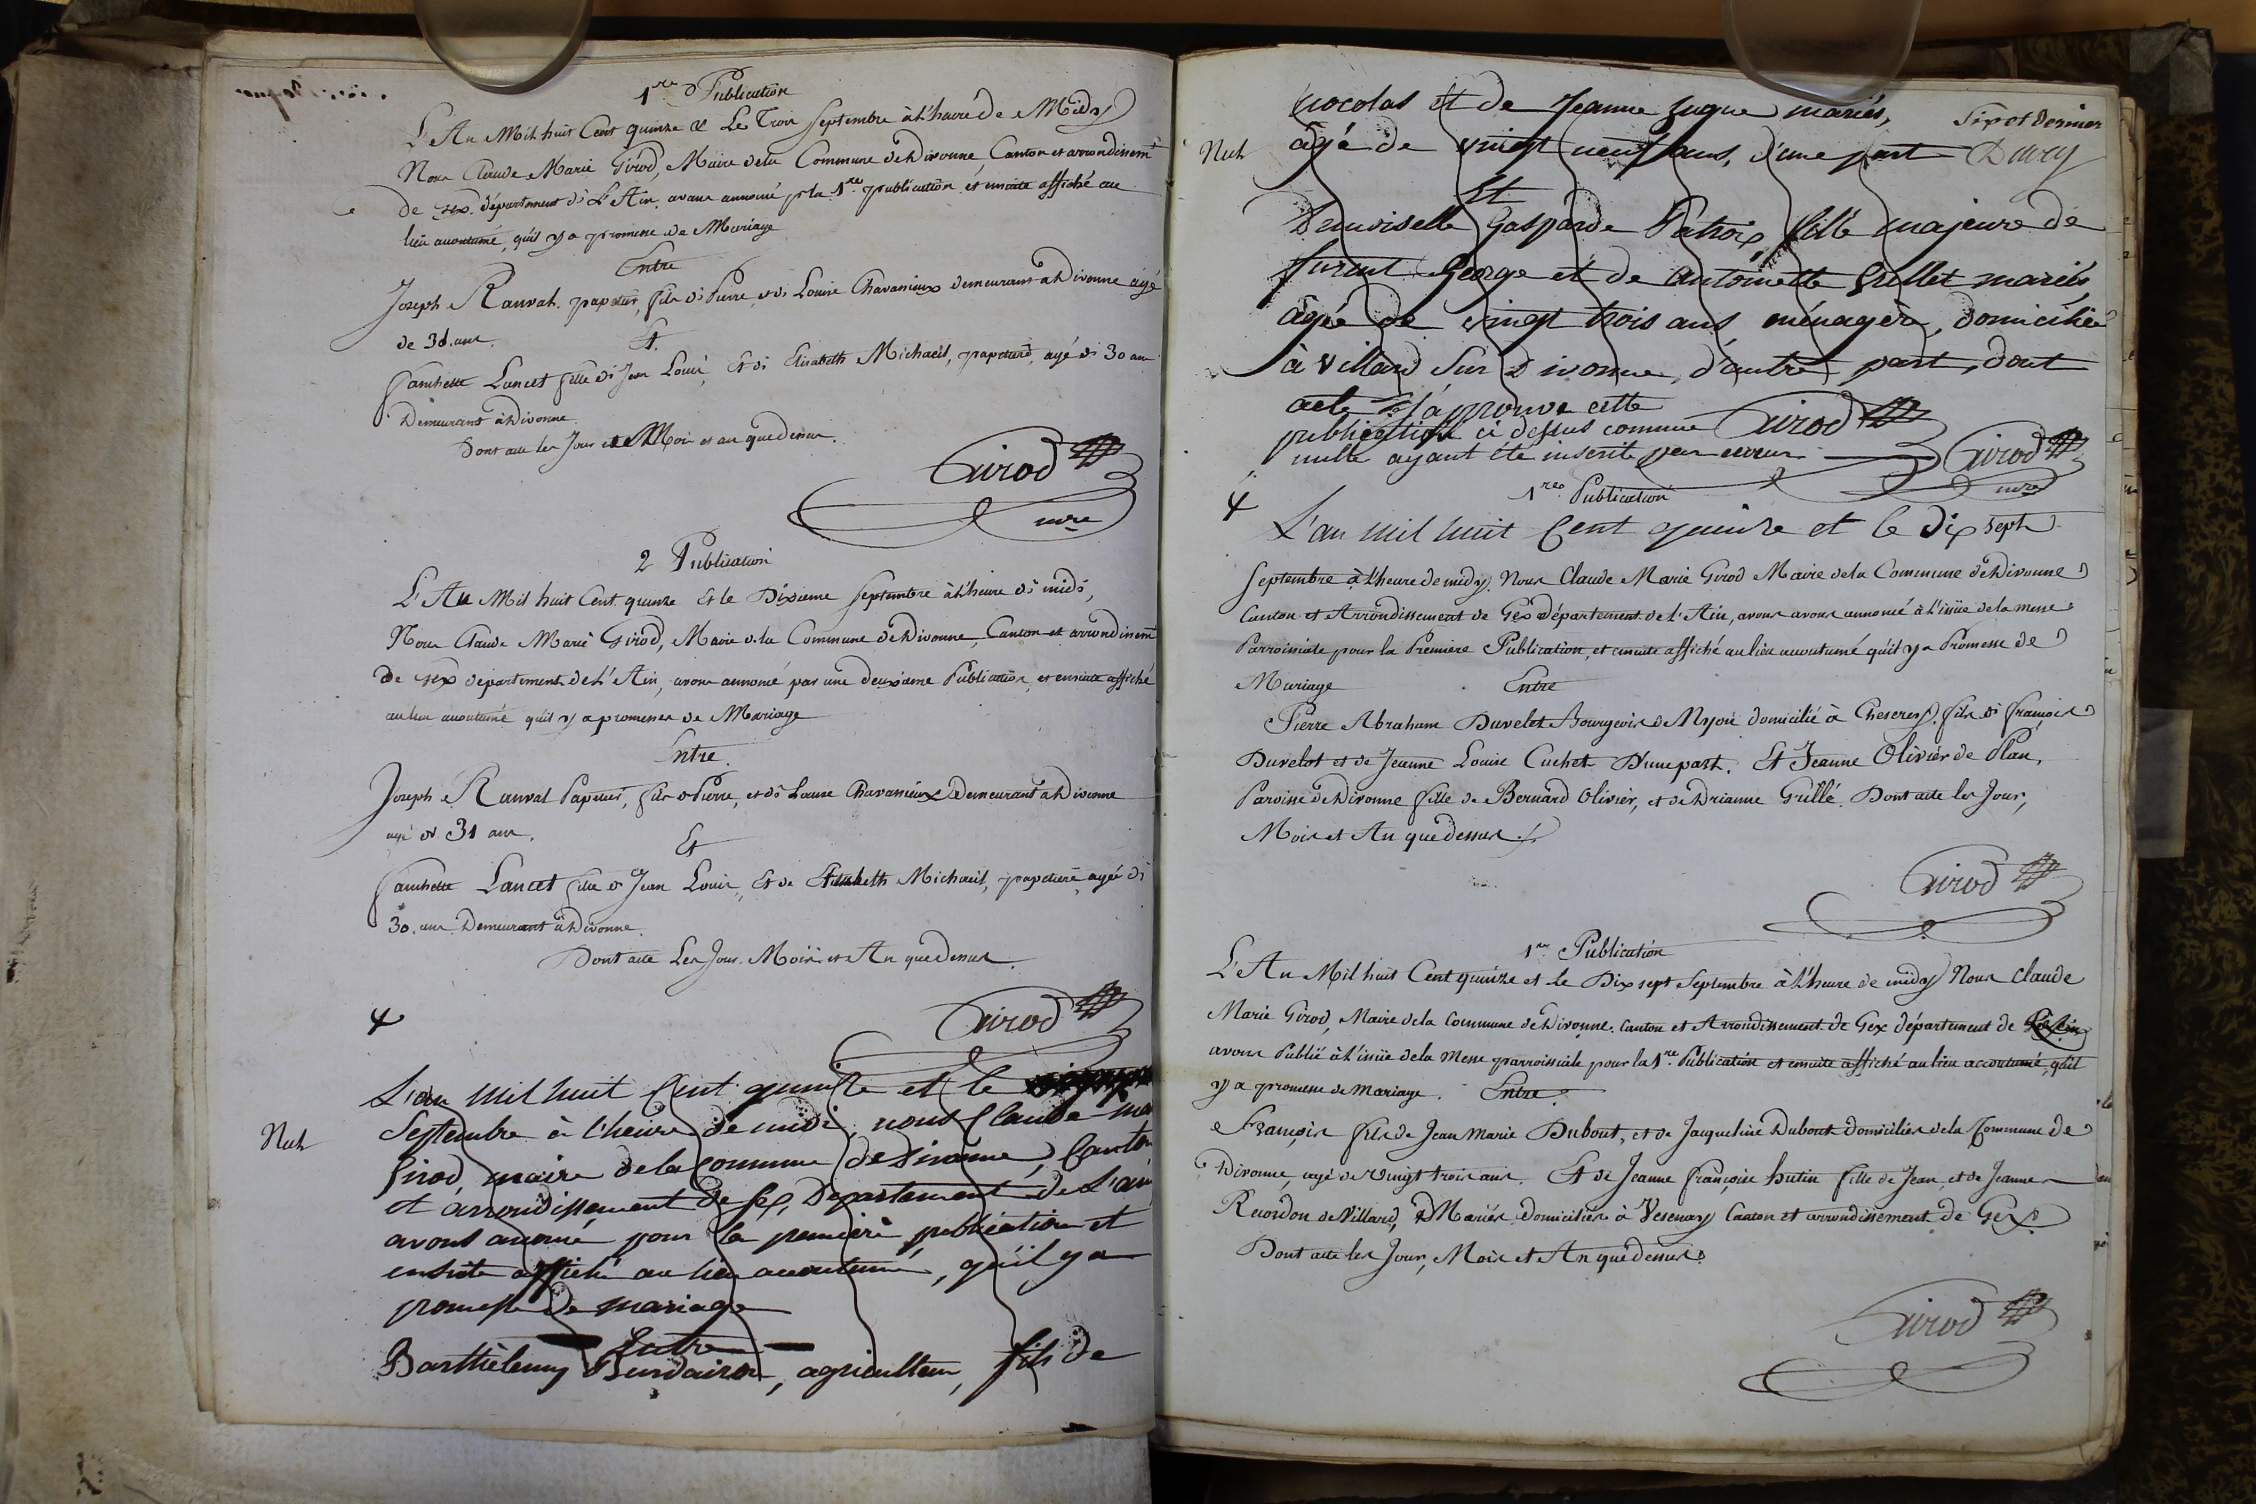 1re Publication
L'An Mil huit Cent quinze & Le Trois Septembre à l'heure de Midy
Nous Claude Marie Girod, Maire dela Commune de Divonne, Canton et arrondissemt
de Gex, département de L'Ain, avons annoncé pr la 1re publication, et ensuite affiché au
lieu accoutumé, qu'il y a promesse de Mariage
Entre
Joseph Ranvat, papetier, fils de Pierre, et de Louise Chavanieux demeurant à Divonne agé
de 31 ans.
Et.
fanchette Lancet fille de Jean Louis, Et de Elisabeth Michaeil, papetiere, agé de 30 ans
Demeurant à Divonne
Dont acte les Jour et Mois et an que dessus.
Girod
mre
2 Publication
L'An Mil huit Cent quinze Et le Dixieme Septembre à l'heure de midi,
Nous Claude Marie Girod, Maire dela Commune de Divonne, Canton et arrondissemt
De Gex département de L'Ain, avons annoncé par une deuxieme Publication, et ensuite affiché
au lieu accoutumé qu'il y a promesse de Mariage
Entre.
Joseph Ranvat Papetier, fils de Pierre, et de Louise Chavanieux Demeurant à Divonne
agé de 31 ans.
Et
fanchette Lancet fille de Jean Louis, Et de Elisabeth Michaeil, papetiere agée de
30 ans Demeurant à Divonne.
Dont acte Les Jour, Mois et An que Dessus.
Girod
L'an mil huit Cent quinze et le
Nul
Septembre à l'heure de midi, nous Claude ma
Girod, maire de la Commune de Divonne, Canton
et arrondissement de Gex, Departement de L'ain
avons anoncé pour la premiere publication et
ensuite affiché au lieu accoutumé, qu'il y a
promesse de mariage
Entre
Barthèlemy Burdairon, agriculteur, fils de
nocolas et de Jeanne Jugue mariés,
Sixot Dernier
Nul
âgé de vingt neuf ans, d'une part
Et
Demoiselle Gasparde Patroix fille majeure de
furent George et de antoinette Grillet mariés
âgée de vingt trois ans ménagère, domiciliée
à Villard Sur Divonne, d'autre part, dont
acte
publication ci dessus comme Girod
nulle ayant été inscrite par erreur Girod
mre
1re Publication
L'an mil huit Cent quinze et le Dix sept
Septembre à l'heure de midy. Nous Claude Marie Girod Maire dela Commune de Divonne
Canton et Arrondissement de Gex Département de L'Ain, avons avons annoncé à l'issüe de la messe
Parroissiale pour la Premiere Publication, et ensuite affiché au lieu accoutumé qu'il y a Promesse de
Mariage Entre
Pierre Abraham Duvelot Bourgeois de Nyon domicilié à Cheserex, fils de françois
Duvelot et de Jeanne Louise Cuchet D'une part. Et Jeanne Olivier de Plan,
Paroisse de Divonne fille de Bernard Olivier, et de Drianne Grillé. Dont acte les Jour,
Mois et An que dessus.
Girod
1re Publication
L'An Mil huit Cent quinze et le Dix sept Septembre à l'heure de midy Nous Claude
Marie Girod, Maire dela Commune de Divonne, Canton et Arrondissement de Gex département de
avons Publié à l'issüe dela Messe parroissiale pour la 1re Publication et ensuite affiché au lieu accoutumé, qu'il
y a promesse de Mariage. Entre.
François fils de Jean Marie Dubout, et de Jaqueline Dubout domiciliés dela Commune de
Divonne, agé de Vingt trois ans. Et de Jeanne françoise hutin fille de Jean, et de Jeanne
Recordon de Villard, Mariés Domiciliés à Vesenay Canton et arrondissement de Gex
Dont acte les Jour, Mois et An que dessus.
Girod